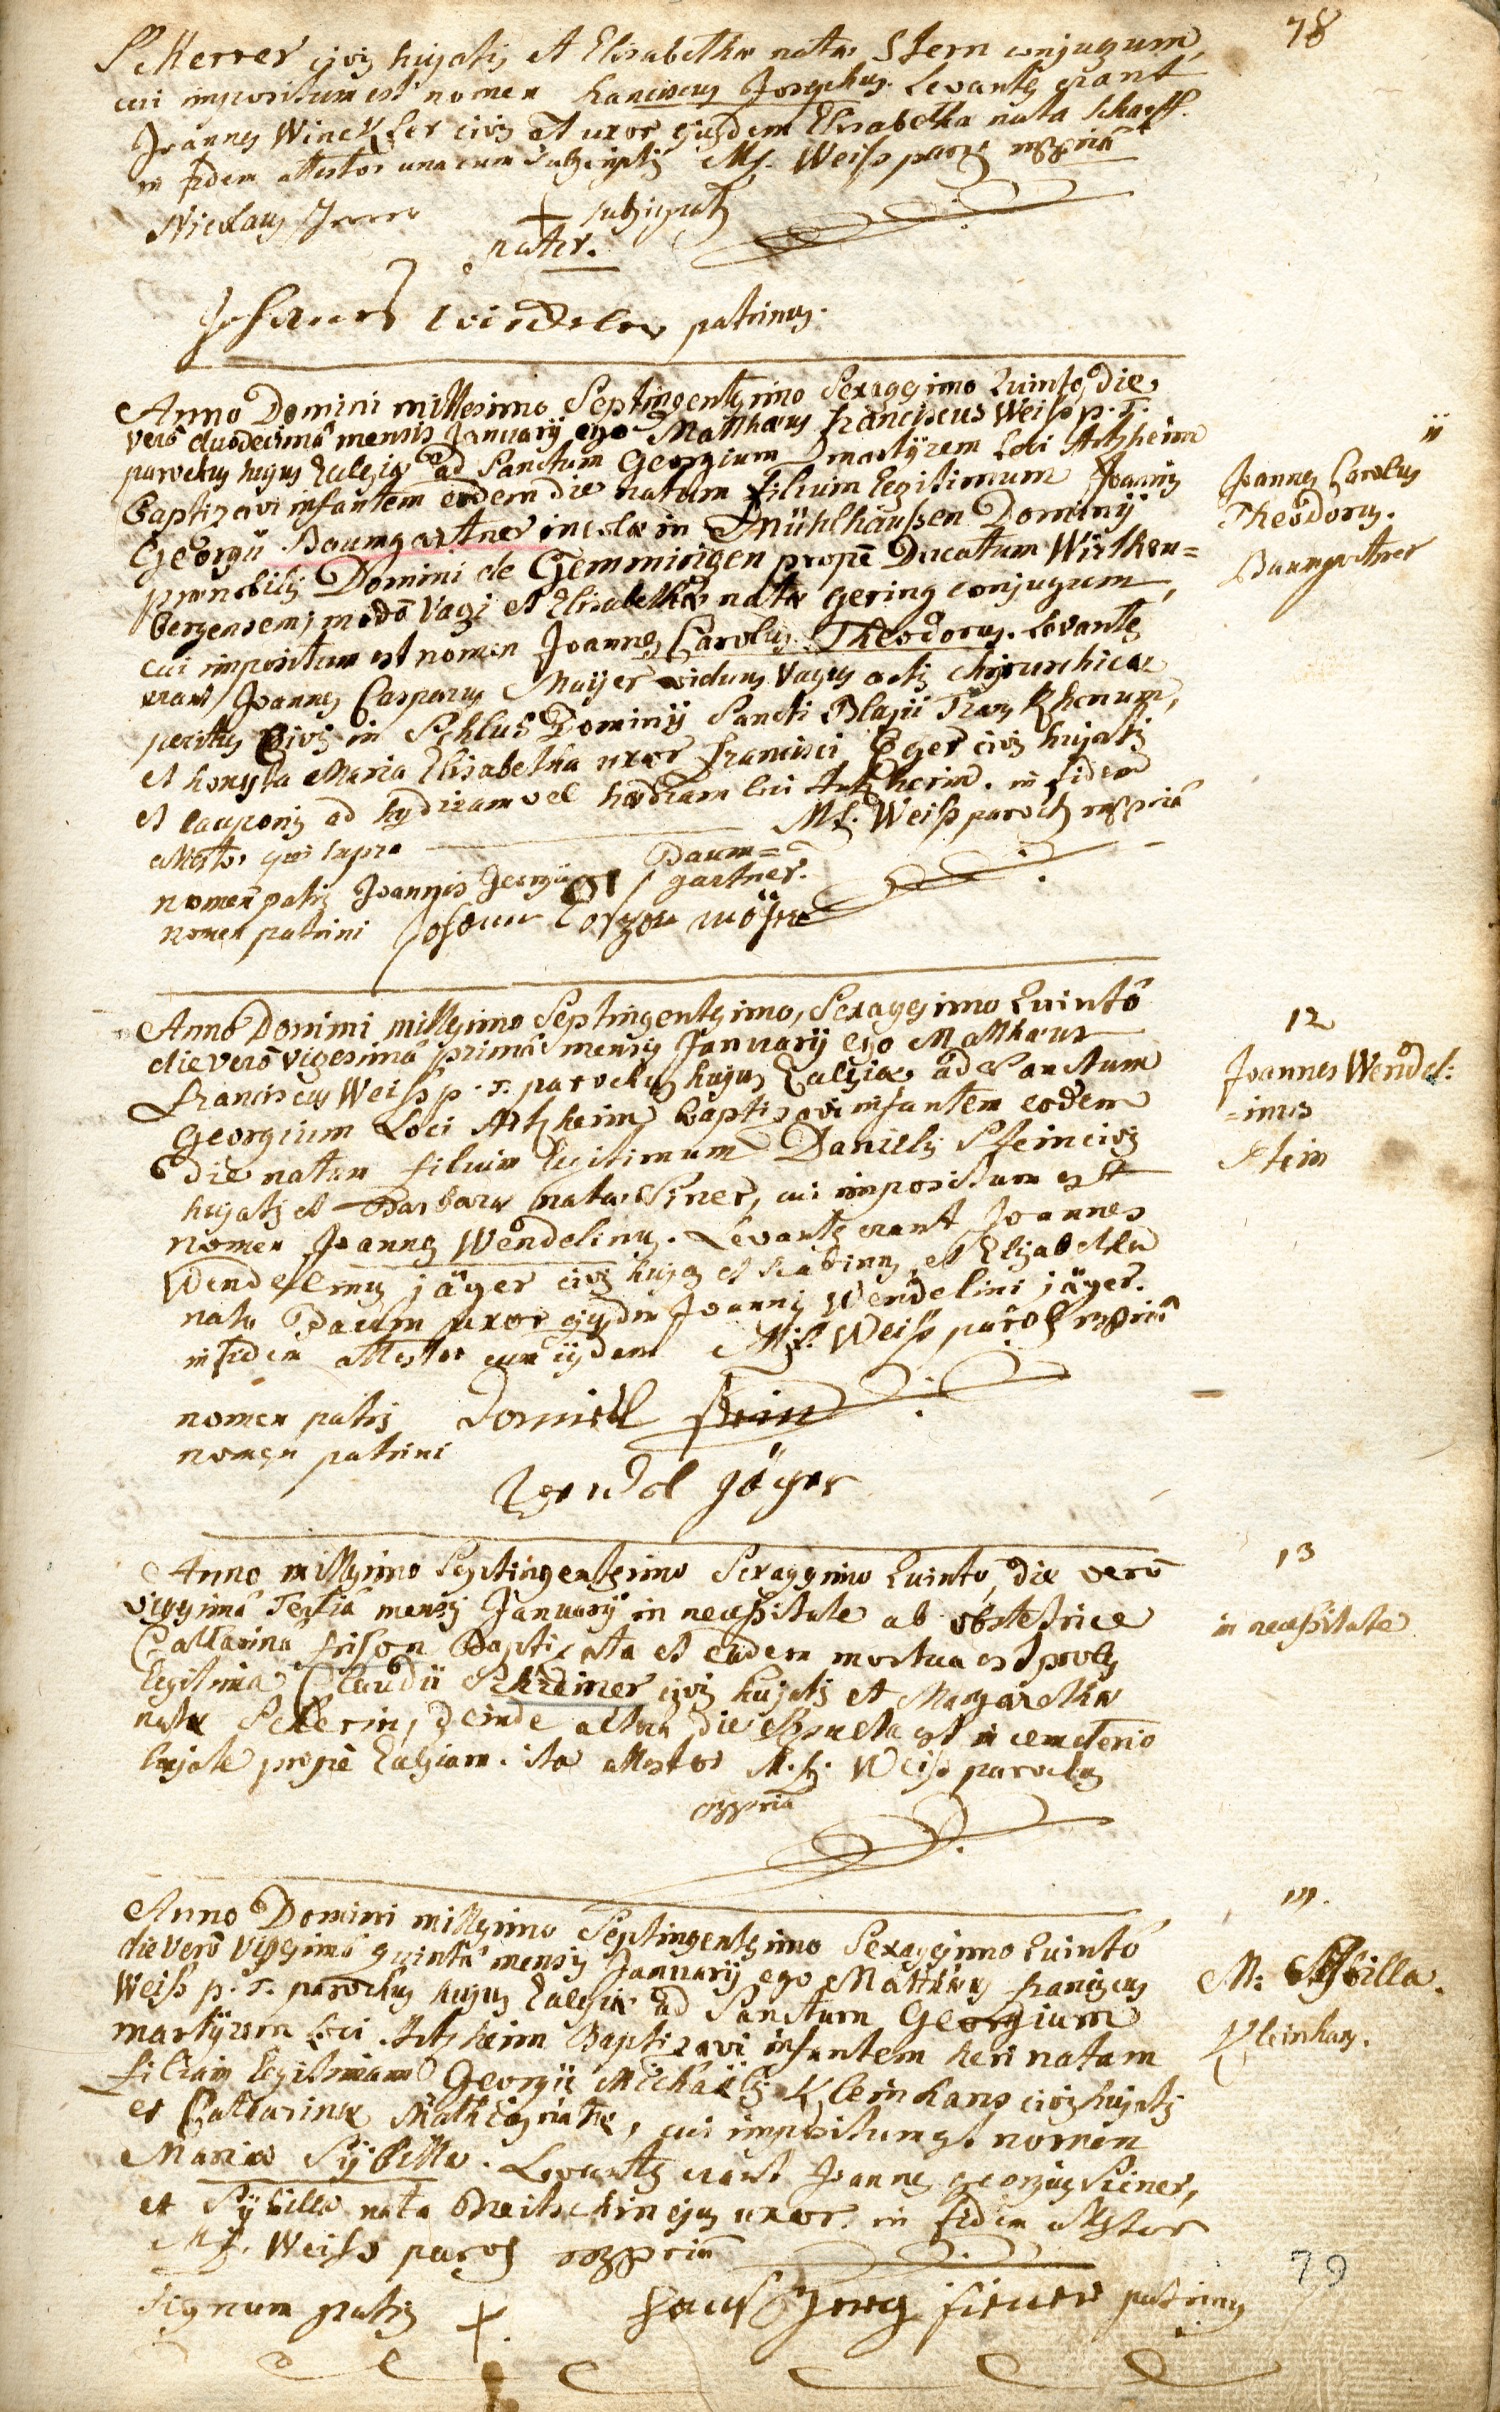 78
Scherrer civis hujatis et Elisabetha nata Stern conjugum,
cui impositum est nomen franciscus Josephus. Levantes erant
Joannes Winckler civis et uxor ejusdem Elisabetha nata Schaeff.
in fidem attestor una cum subscriptis Mf. Weiss paroch mppriâ
Nicolaus + subsignatus
pater.
patrinus.
Anno Domini millesimo Septingentesimo Sexagesimo Quinto, die
verò duodecimâ mensis Januarij ego Matthaeus franciscus Weiss p. T.
parochus hujus Ecclesiae ad Sanctum Georgium martÿrem Loci Artzheim
Baptizavi infantem eodem die natum filium legitimum Joannis
Georgii Baumgartner incolae in Mühlhaussen Dominÿ
praenobilis Domini de Gemmingen propè Ducatum Wirthen=
bergensem, modò Vagi et Elisabetha nata gering conjugum,
cui impositum est nomen Joannes Carolus Theodorus. Levantes
erant Joannes Casparus Maÿer viduus Vagus artis chÿrurchicae
peritus Civis in Schlus Dominÿ Sancti Blasii Trans Rhenum,
et honesta Maria Elisabetha uxor francisci Eger civis hujatis
et cauponis ad hydram vel hydram loci Artzheim. in fidem
attestor qui supra Mf. Weiss paroch mppriâ
nomen patris Joannis Georgii Baum=
gartner.
nomen patrini
ii
Joannes Carolus
Theodorus.
Baumgartner
Anno Domini millesimo Septingentesimo, Sexagesimo Quintô
die verò vigesimâ primâ mensis Januarij ego Matthaeus
franciscus Weiss p. T. parochus hujus Ecclesiae ad Sanctum
Georgium Loci Artzheim Baptizavi infantem eodem
die natum filium legitimum Danielis Stein civis
hujatis et Barbara nata Siner, cui impositum est
nomen Joannes Wendelinus. Levantes erant Joannes
Wendelinus jäger civis hujas et scabinus, et Elisabetha
nata Baum uxor ejusdm Joannis Wendelini jäger.
in fidem attestor cum iisdem Mf. Weiss paroch mppriâ
nomen patris Daniel Stein
nomen patrini
Wendel jäger
12
Joannes Wendel:
=inus
Stein
Anno millesimo Septingentesimo Sexagesimo Quinto, die verò
vigesimâ Tertiâ mensis Januarij in necessitate ab obstetrice
Catharina frison Baptizata et eadem mortua est proles
legitima Claudii Schreiner civis hujatis et Margaretha
nata Scherin, deinde alterâ die sepulta est in cemeterio
hujate propè Ecclesiam. ita attestor M. f. Weiss parochus
mppriâ
13
in necessitate
Anno Domini millesimo Septingentesimo Sexagesimo Quintô
die verò vigesimâ quintâ mensis Januarij ego Matthaeus franciscus
Weiss p. T. parochus hujus Ecclesiae ad Sanctum Georgium
martÿrem loci Artzheim Baptizavi infantem heri natam
filiam legitimam Georgii Michaëlis Kleinhans civis hujatis
et Catharinae Mathias nata, cui impositum est nomen
Maria Sÿbilla. Levantes erant Joannes georgius Siener,
et Sÿbilla nata ejus uxor. in fidem attestor
Mf. Weiss paroch mppriâ
signum patris + Hans Jerg siener patrinus
M: Sÿbilla.
Kleinhans.
79